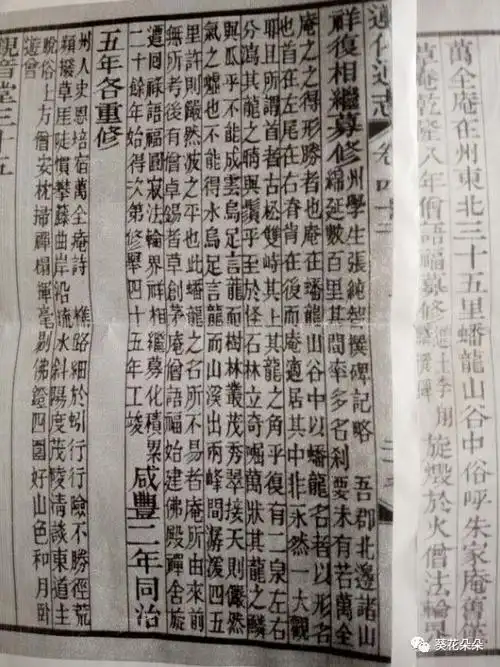 萬全庵在州東北三十五里蟠龍山谷中俗呼朱家庵舊係
草庵乾隆八年僧語福募修
進士李翔
撰碑
旋燬於火僧法輪界
遵化通志 卷四十三
祥復相繼募修
州學生張純智撰碑記略 吾郡北邊諸山
綿延數百里其間率多名刹要未有若萬全
庵之之得形勝者也庵在蟠龍山谷中以蟠龍名者以形名
也首在左尾在右脊肖在後而庵適居其中非永然一大觀
耶且所謂首者古松雙峙其上其龍之角乎復有二泉左右
分瀉其龍之睛與鬚乎至於怪石林立奇崛萬狀其龍之鱗
與瓜乎不能成雲烏足言龍而樹林叢茂秀翠接天則儼然
氣之噓也不能得水烏足言龍而山溪出兩峰間潺湲四五
里許則儼然波之平也此蟠龍之名所不易者庵所由來前
無所考後有僧卓錫者草創茅庵僧語福始建佛殿禪舍旋
遭回祿語福圓寂法輪界祥相繼募化積累
二十餘年始得次第修舉四十五年工竣
咸豐二年同治
五年各重修
州人史恩培宿萬全庵詩 樵路細於蚓行行險不勝徑荒
頹撥草崖陡慣攀藤曲岸沿流水斜陽度茂陵清談東道主
脫俗上方僧安枕掃禪榻揮毫剔佛鐙四圍好山色和月卧
遊曾
觀音堂三十五
葵花朵朵